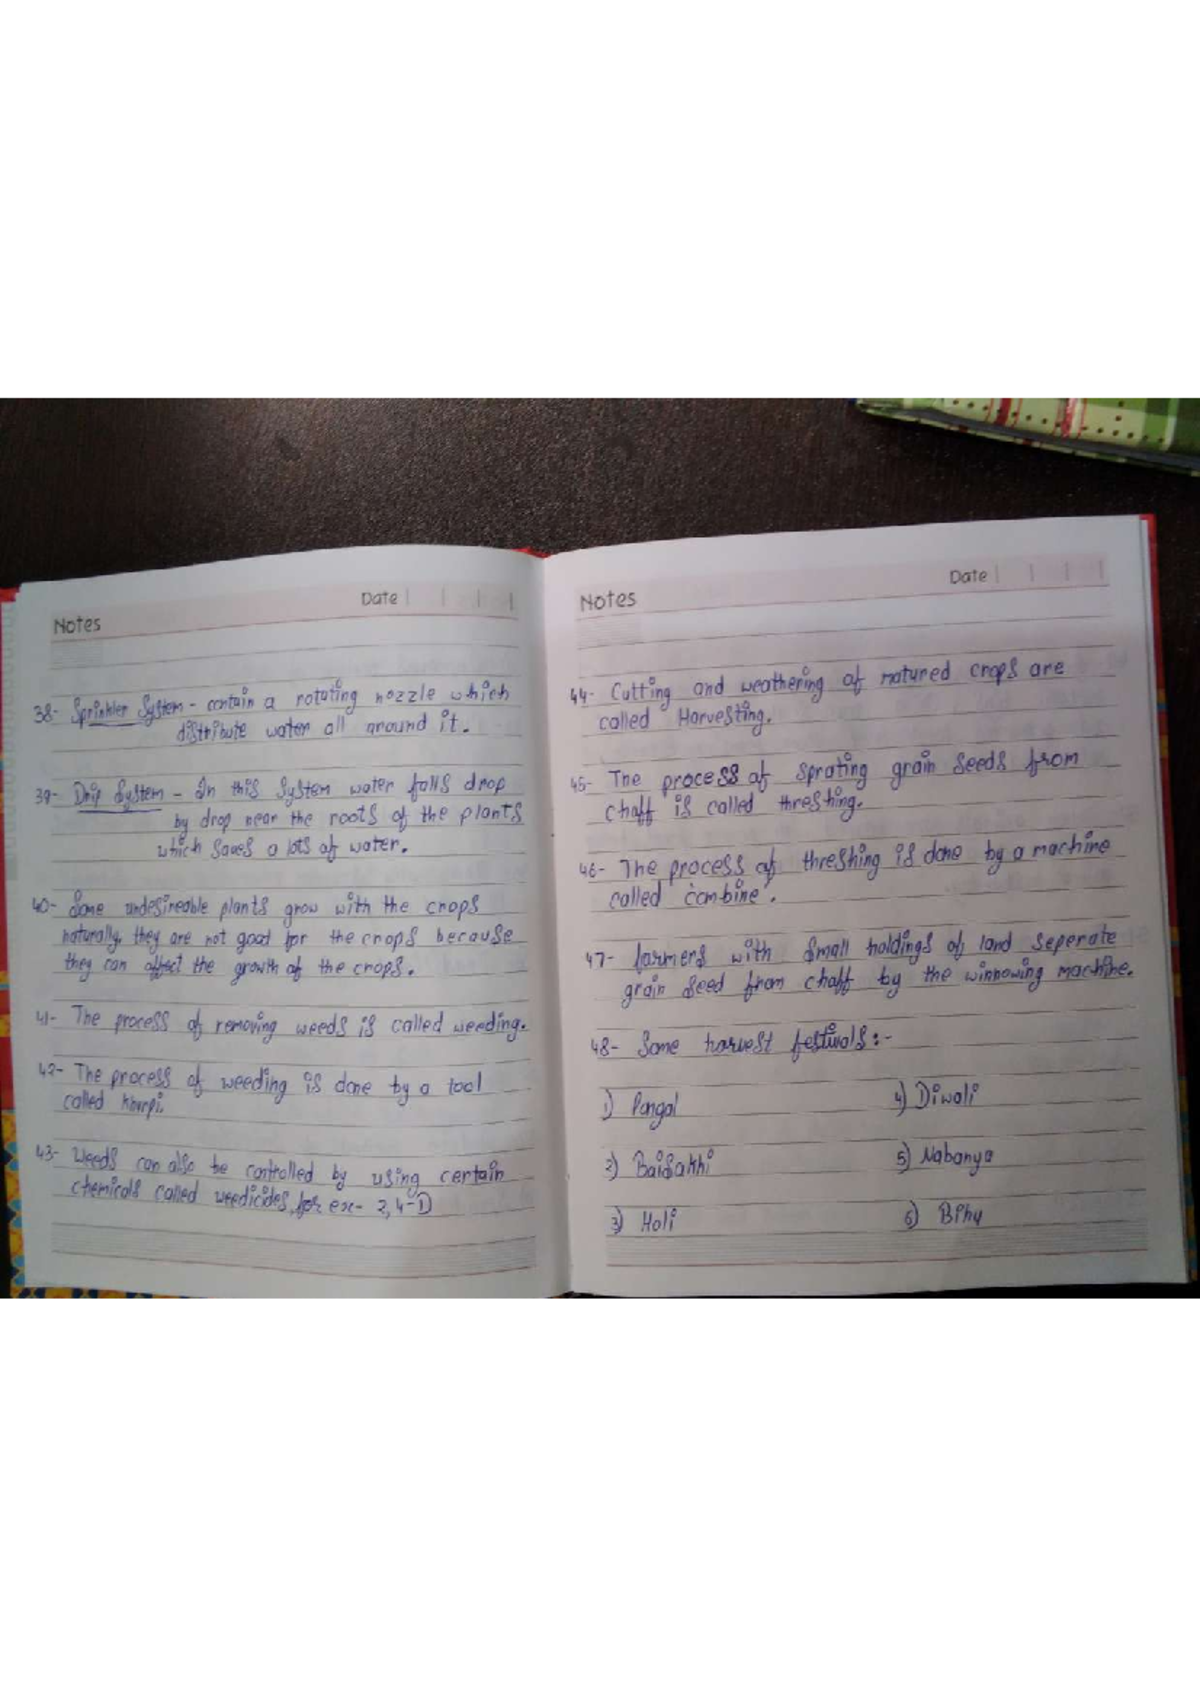 Notes
Date
38- Sprinkler System - contain a rotating nozzle which
distribute water all around it.
39- Drip System - In this System water falls drop
by drop near the roots of the plants
which saves a lots of water.
40- Some undesireable plants grow with the crops
naturally, they are not good for the crops because
they can affect the growth of the crops.
41- The process of removing weeds is called weeding.
42- The process of weeding is done by a tool
called khurpi.
43- Weeds can also be controlled by using certain
chemicals called weedicides, for ex- 2,4-D
Notes
Date
44- Cutting and weathering of matured crops are
called Harvesting.
45- The process of sprating grain seeds from
chaff is called threshing.
46- The process of threshing is done by a machine
called 'combine'.
47- farmers with small holdings of land seperate
grain seed from chaff by the winnowing machine.
48- Some harvest festivals:-
1) Pongal
4) Diwali
2) Baisakhi
5) Nabanya
3) Holi
6) Bihu